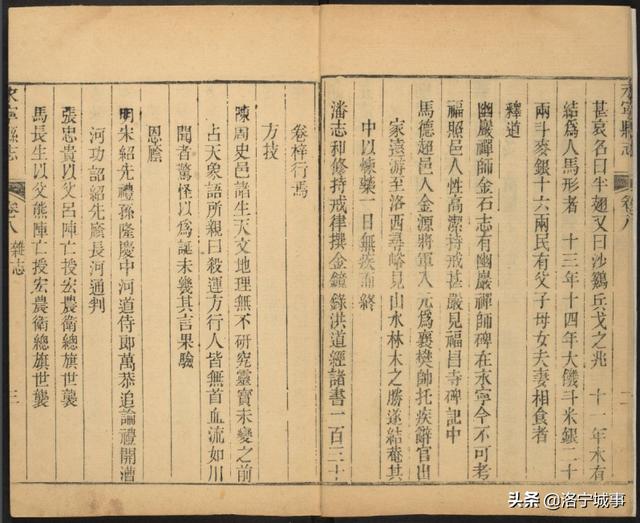 永寧縣志
卷八
二
甚哀名曰半翅又曰沙鷄兵戈之兆　十一年水有
結爲人馬形者　十三年十四年大饑斗米銀二十
兩斗麥銀十六兩民有父子母女夫妻相食者
釋道
幽巖禪師金石志有幽巖禪師碑在永寧今不可考
福照邑人性高潔持戒甚嚴見福昌寺碑記中
馬德超邑人金源將軍入元爲襄樊帥托疾辭官出
家遠游至洛西尋峪見山水林木之勝遂結菴其
中以煉藥一日無疾而終
潘志和修持戒律撰金鐘錄洪道經諸書一百三十
卷梓行焉
方技
陳周史邑諸生天文地理無不研究靈寶未變之前
占天象語所親曰殺運方行人皆無首血流如川
聞者驚怪以爲誕未幾其言果驗
恩廕
明宋紹先禮孫隆慶中河道侍郎萬恭追論禮開漕
河功詔紹先廕長河通判
張忠貴以父呂陣亡授宏農衛總旗世襲
馬長生以父熊陣亡授宏農衛總旗世襲
永寧縣志
卷八　雜志
三
头条 @洛宁城事